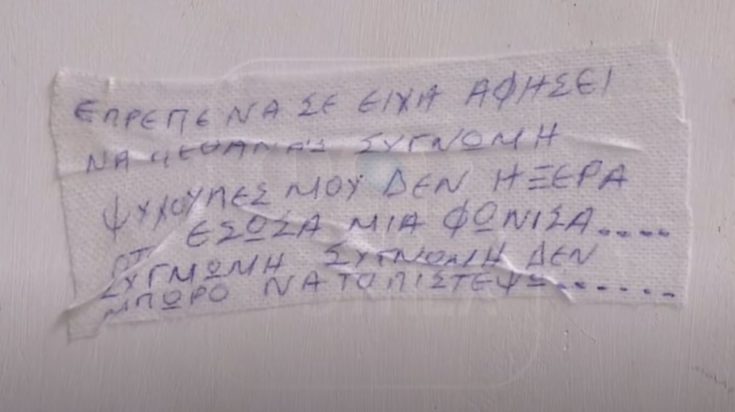 ΕΠΡΕΠΕ ΝΑ ΣΕ ΕΙΧΑ ΑΦΗΣΕΙ
ΝΑ ΠΕΘΑΝΕΙΣ ΣΥΓΝΩΜΗ
ΨΥΧΟΥΛΕΣ ΜΟΥ ΔΕΝ ΗΞΕΡΑ
ΟΤΙ ΕΣΩΣΑ ΜΙΑ ΦΩΝΙΣΑ....
ΣΥΓΝΩΜΗ ΣΥΓΝΩΜΗ ΔΕΝ
ΜΠΩΡΟ ΝΑ ΤΟ ΠΙΣΤΕΨΩ.......